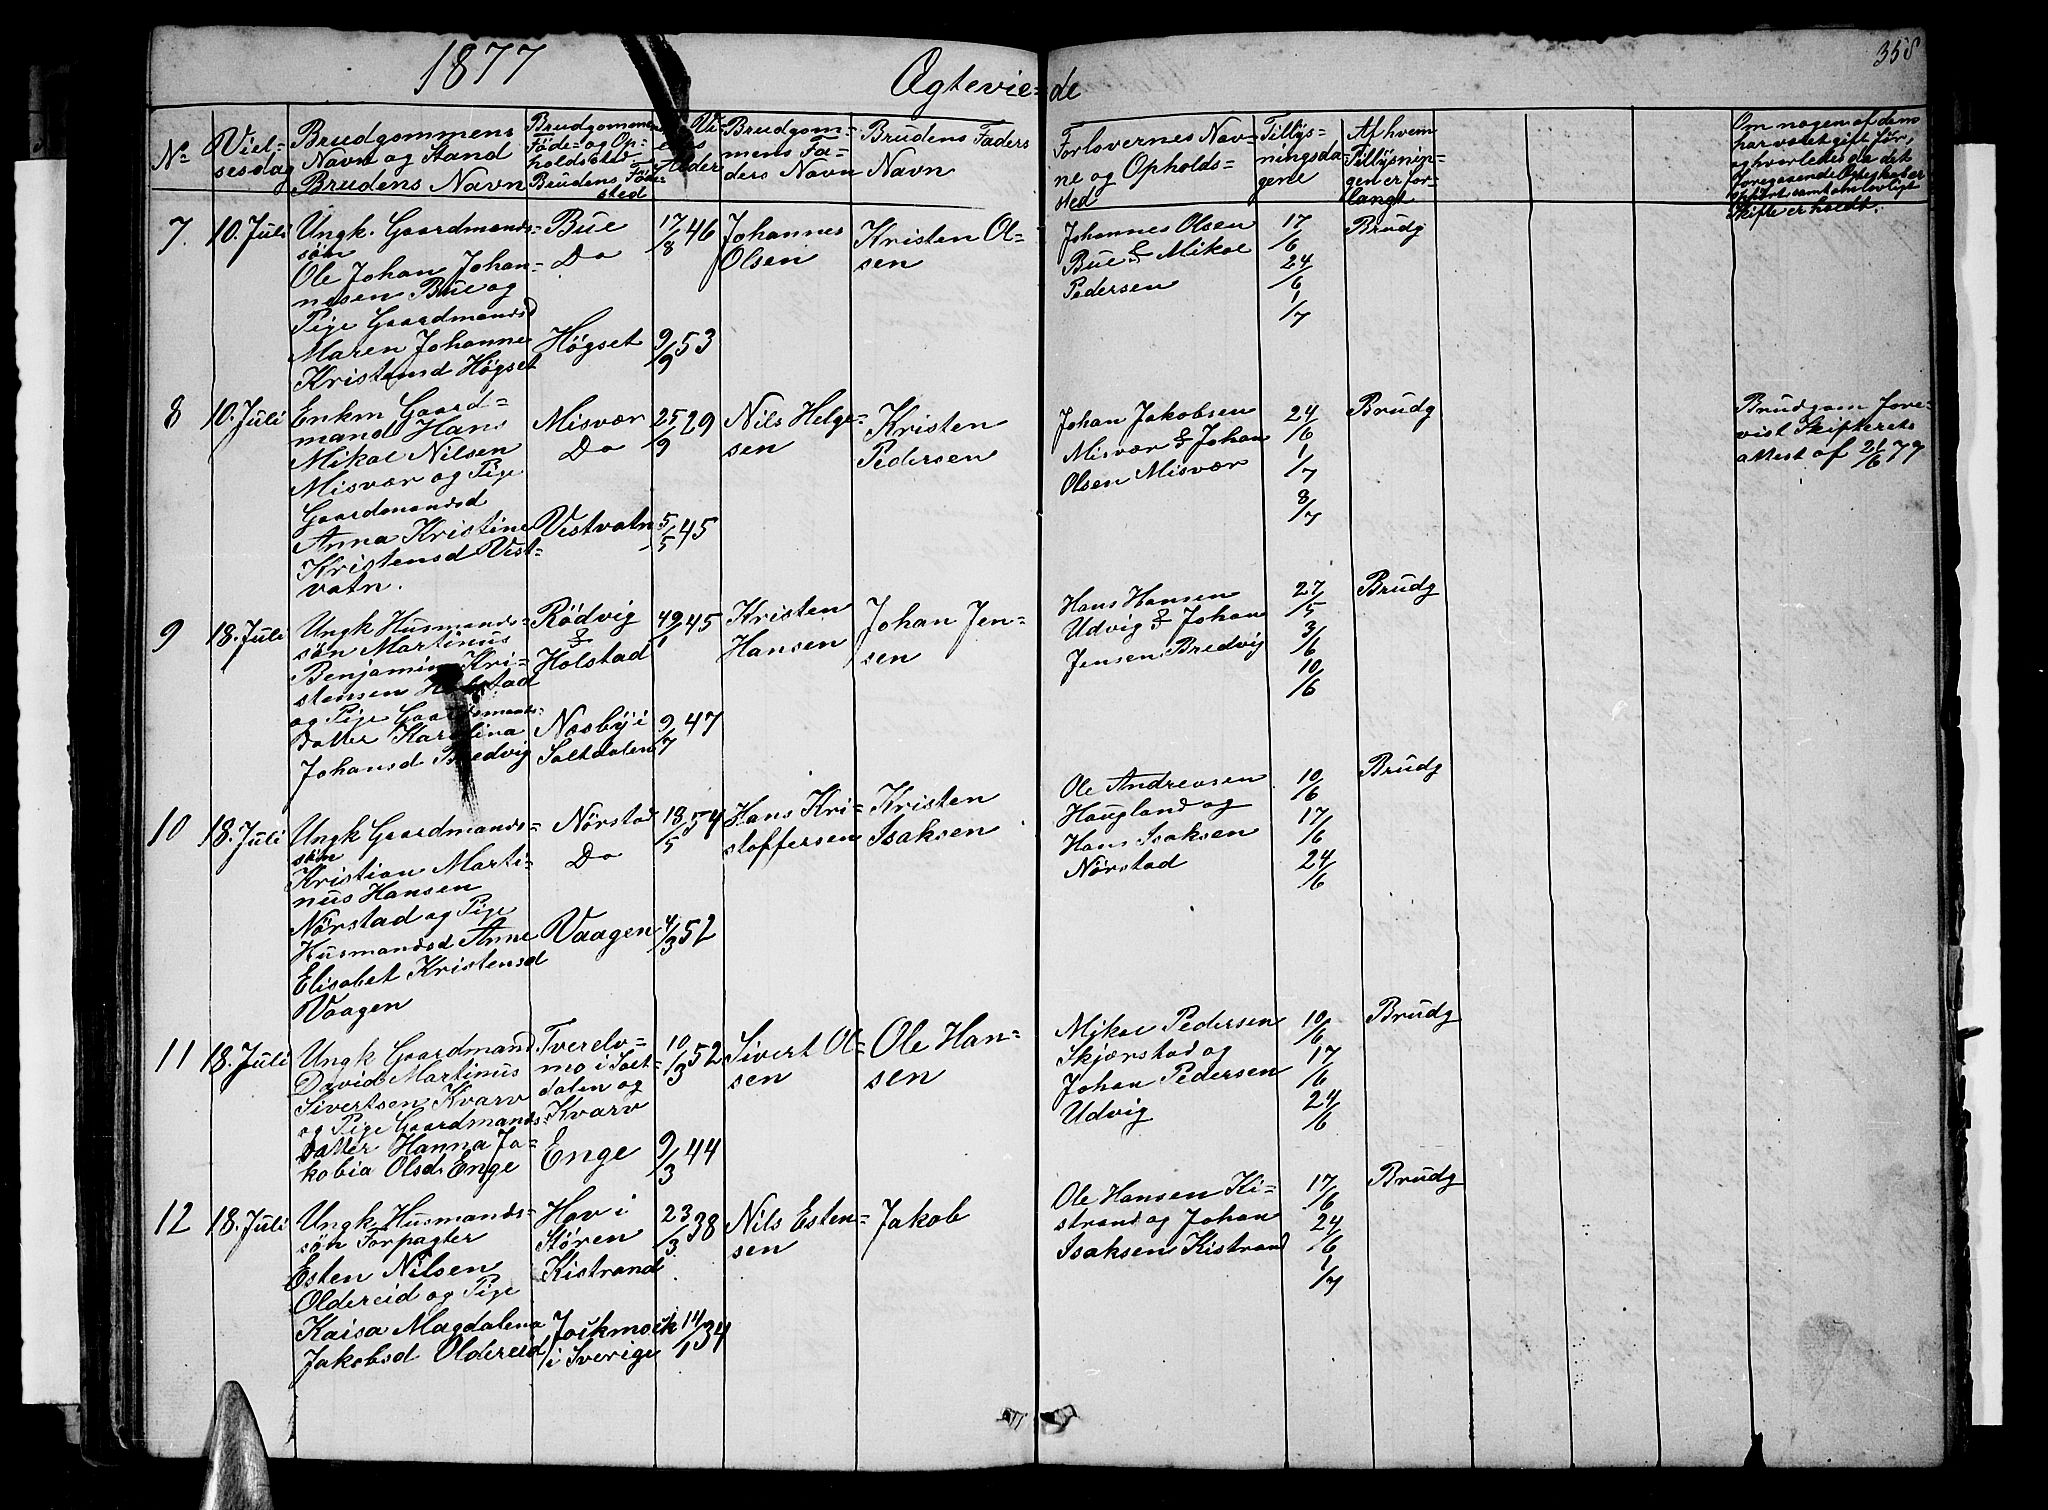 1877
Ægteviede
358
No
Viel-
sesdag
Brudgommens
Navn og Stand
Brudens Navn
Brudgommens
Føde- og Op-
holdssted
Brudens Føde-
sted
Alder
Brudgom-
mens Fa-
ders Navn
Brudens Faders
Navn
Forlovernes Nav-
ne og Opholds-
sted
Tillys-
ningsda-
gene
Af hvem
Tillysnin-
gen er for-
langt
Om nogen af dem
har været gift før,
og hvorledes da det
foregaaende Ægteskab er
opløst samt om lovligt
Skifte er holdt.
7.
10. Juli
Ungk. Gaardmands-
søn
Ole Johan Johan-
nesen Bue og
Pige Gaardmandsd
Maren Johanne
Kristensd Högset
Bue
Do
Högset
17/8 46
9/9 53
Johannes
Olsen
Kristen Ol-
sen
Johannes Olsen
Bue & Mikal
Pedersen
17/6
24/6
1/7
Brudg
8
10. Juli
Enkm Gaard-
mand Hans
Mikal Nilsen
Misvær og Pige
Gaardmandsd
Anna Kristine
Kristensd Vest-
vatn.
Misvær
Do
Vestvatn
25/9 29
5/5 45
Nils Helge-
sen
Kristen
Pedersen
Johan Jakobsen
Misvær & Johan
Olsen Misvær
24/6
1/7
8/7
Brudg
Brudgom fore-
vist Skifterets
attest af 21/6 77
9
18. Juli
Ungk Husmands-
søn Martinus
Benjamin Kri-
stensen Holstad
og Pige Gaardmands-
datter Karolina
Johansd Bredvig
Rödvig
&
Holstad
Næsby i
Saltdalen
45
9/7 47
Kristen
Hansen
Johan Jen-
sen
Hans Hansen
Udvig & Johan
Jensen Bredvig
27/5
3/6
10/6
Brudg
10
18. Juli
Ungk Gaardmands-
søn
Kristian Marti-
nus Hansen
Nörstad og Pige
Husmandsd Anne
Elisabet Kristensd
Vaagen
Nörstad
Do
Vaagen
18/5 54
4/3 52
Hans Kri-
stoffersen
Kristen
Isaksen
Ole Andreasen
Haugland og
Hans Isaksen
Nörstad
10/6
17/6
24/6
Brudg
11
18. Juli
Ungk Gaardmand
David Martinus
Sivertsen Kvarv
og Pige Gaardmands-
datter Hanna Ja-
kobia Olsd. Enge
Tverelv-
mo i Salt-
dalen og
Kvarv
Enge
10/3 52
9/3 44
Sivert Ol-
sen
Ole Han-
sen
Mikal Pedersen
Skjærstad og
Johan Pedersen
Udvig
10/6
17/6
24/6
Brudg
12
18. Juli
Ungk Husmands-
søn Forpagter
Esten Nilsen
Oldereid og Pige
Kaisa Magdalena
Jakobsd Oldereid
Hov i
Stören
Kistrand
Jockmock
i Sverige
23/3 38
14/1 34
Nils Esten-
sen
Jakob
Ole Hansen Ki-
strand og Johan
Isaksen Kistrand
17/6
24/6
1/7
Brudg